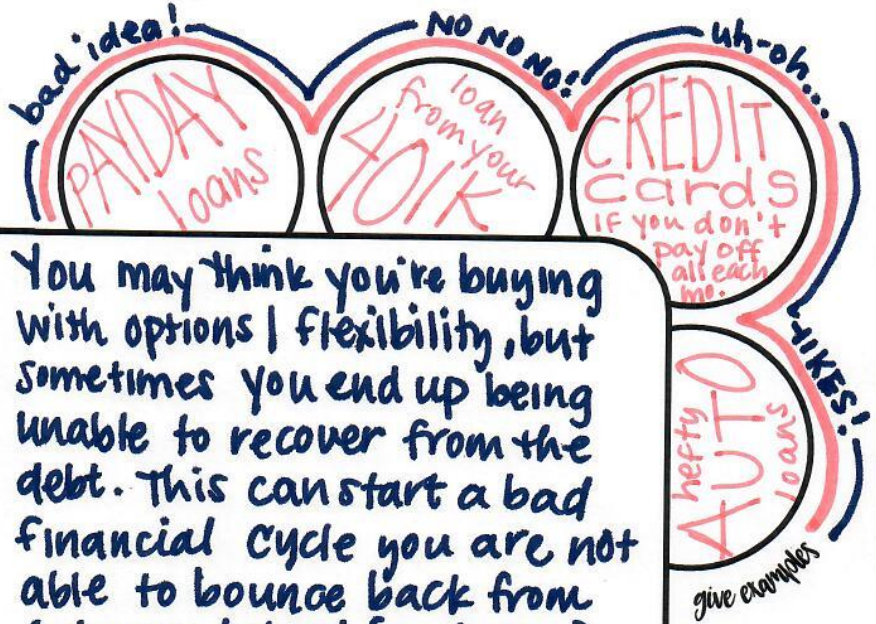 bad idea!
PAYDAY
loans
NO NO NO!
loan
from your
401K
uh-oh...
CREDIT
cards
IF you don't
pay off
all each
mo.
YIKES!
hefty
AUTO
loans
give examples
You may think you're buying
with options | flexibility, but
sometimes you end up being
unable to recover from the
debt. This can start a bad
financial cycle you are not
able to bounce back from